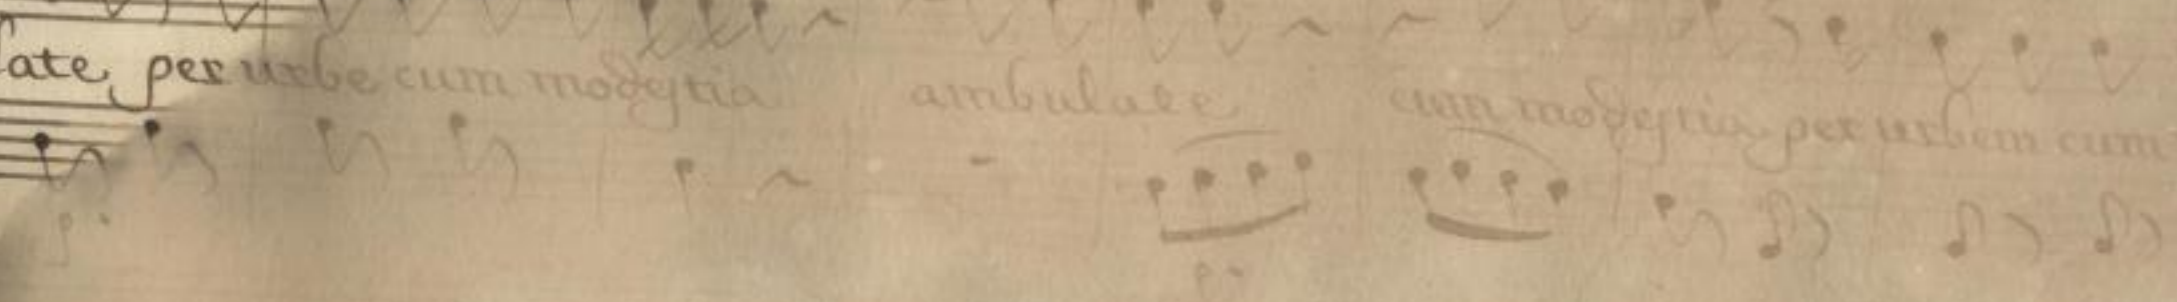 ate per urbe cum modestia ambulate cum modestia per urbem cum
p.
p.